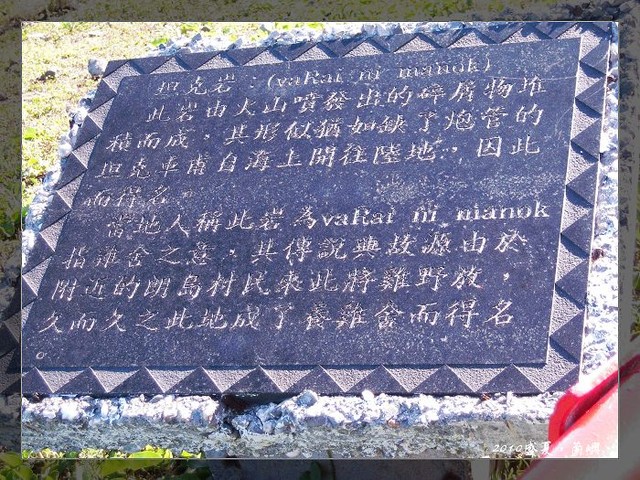 坦克岩：(vaRai ni manok)
此岩由火山噴發出的碎屑物堆
積而成，其形似猶如缺了炮管的
坦克車膚自海上開往陸地，因此
而得名。
當地人稱此岩為vaRai ni manok
指雞舍之意，其傳說典故源由於
附近的朗島村民來此將雞野放，
久而久之此地成了養雞舍而得名
。
2010盛夏．蘭嶼